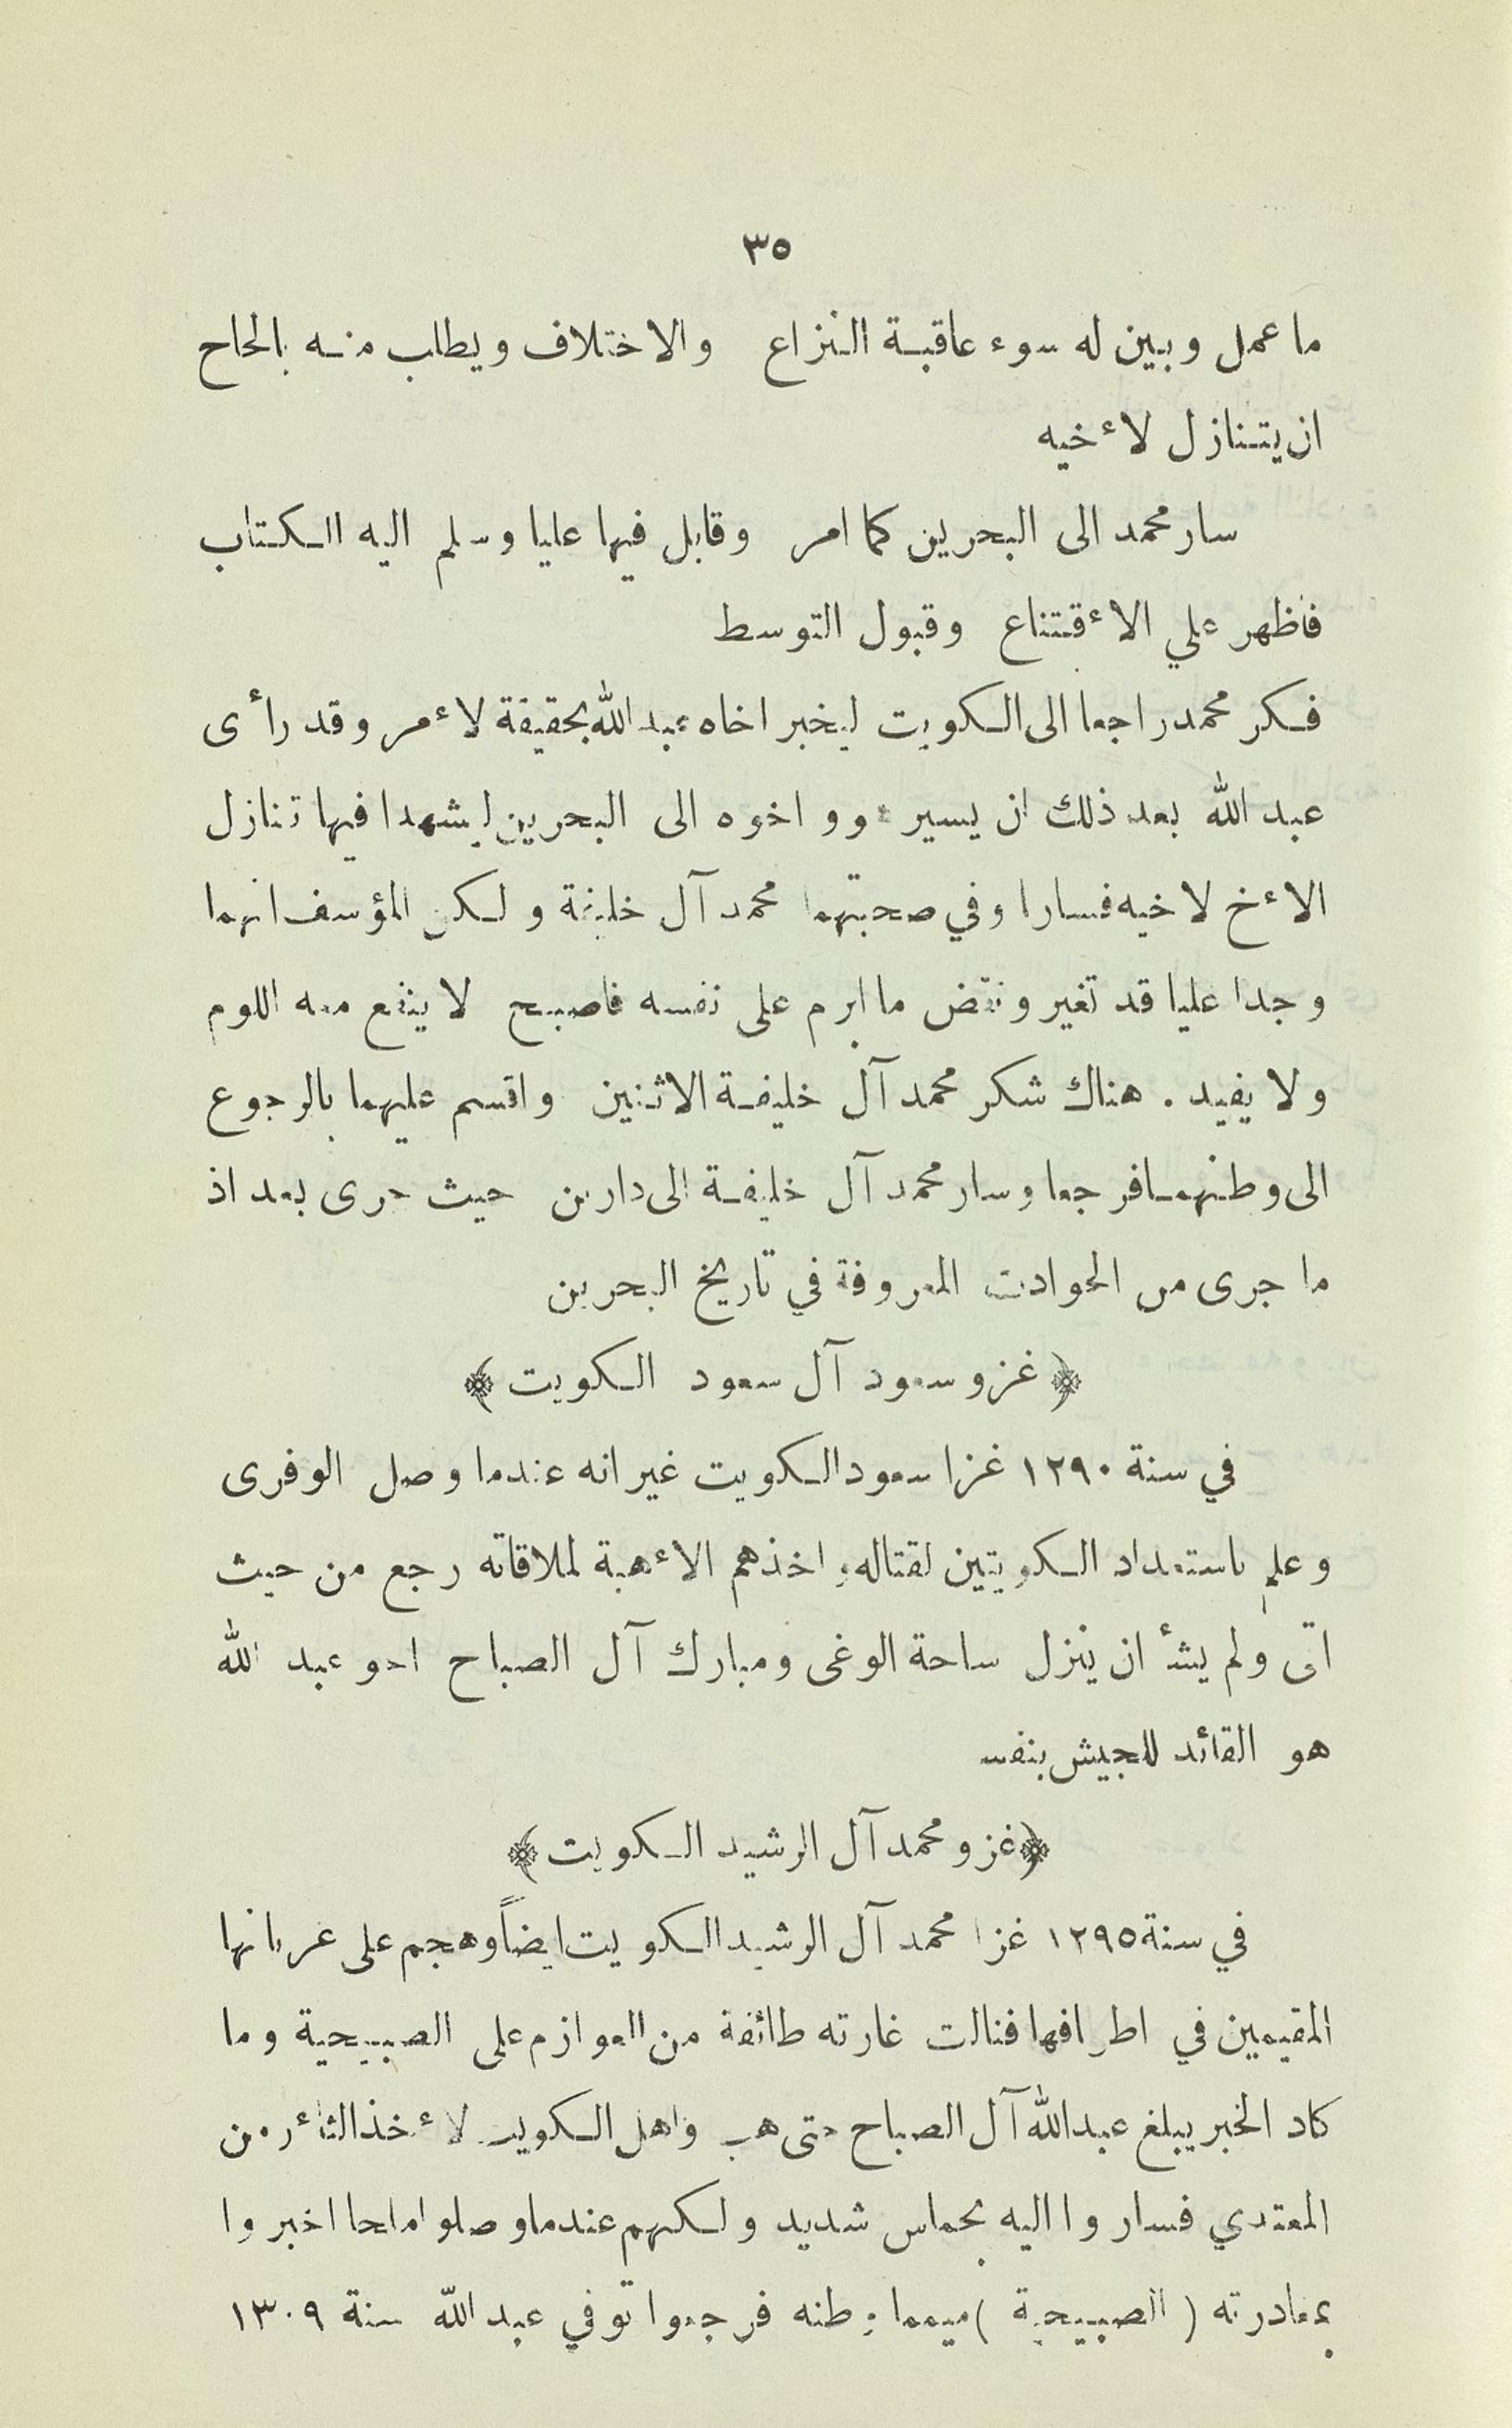 ٣٥
ما عمل وبين له سوء عاقبة النزاع والاختلاف ويطلب منه بالحاح
ان يتنازل لاءخيه
سار محمد الى البحرين كما امر وقابل فيها عليا وسلم اليه الكتاب
فأظهر علي الاءقتناع وقبول التوسط
فكر محمد راجعا الى الكويت ليخبر اخاه عبد الله بحقيقة لاءمر وقد رأى
عبد الله بعد ذلك ان يسير وواخوه الى البحرين ليشهدا فيها تنازل
الاءخ لاخيه فسارا وفي صحبتهما محمد آل خليفة ولكن المؤسف انهما
وجدا عليا قد تغير ونقض ما ابرم على نفسه فاصبح لا ينفع معه اللوم
ولا يفيد . هناك شكر محمد آل خليفة الاثنين واقسم عليهما بالرجوع
الى وطنهما فرجعا وسار محمد آل خليفة الى دارين حيث جرى بعد اذ
ما جرى من الحوادث المعروفة في تاريخ البحرين
﴿ غزو سعود آل سعود الكويت ﴾
في سنة ١٢٩٠ غزا سعود الكويت غير انه عندما وصل الوفرى
وعلم باستعداد الكويتيين لقتاله واخذهم الاءهبة لملاقاته رجع من حيث
اتى ولم يشأ ان ينزل ساحة الوغى ومبارك آل الصباح اخو عبد الله
هو القائد للجيش بنفسه
﴿ غزو محمد آل الرشيد الكويت ﴾
في سنة ١٢٩٥ غزا محمد آل الرشيد الكويت ايضاً وهجم على عربانها
المقيمين في اطرافها فنالت غارته طائفة من العوازم على الصبيحية وما
كاد الخبر يبلغ عبدالله آل الصباح حتى هب واهل الكويت لاءخذ الثاءر من
المعتدي فساروا اليه بحماس شديد ولكنهم عندما وصلوا ملحا اخبروا
بمغادرته ( الصبيحية ) ميمما وطنه فرجعوا توفي عبد الله سنة ١٣٠٩